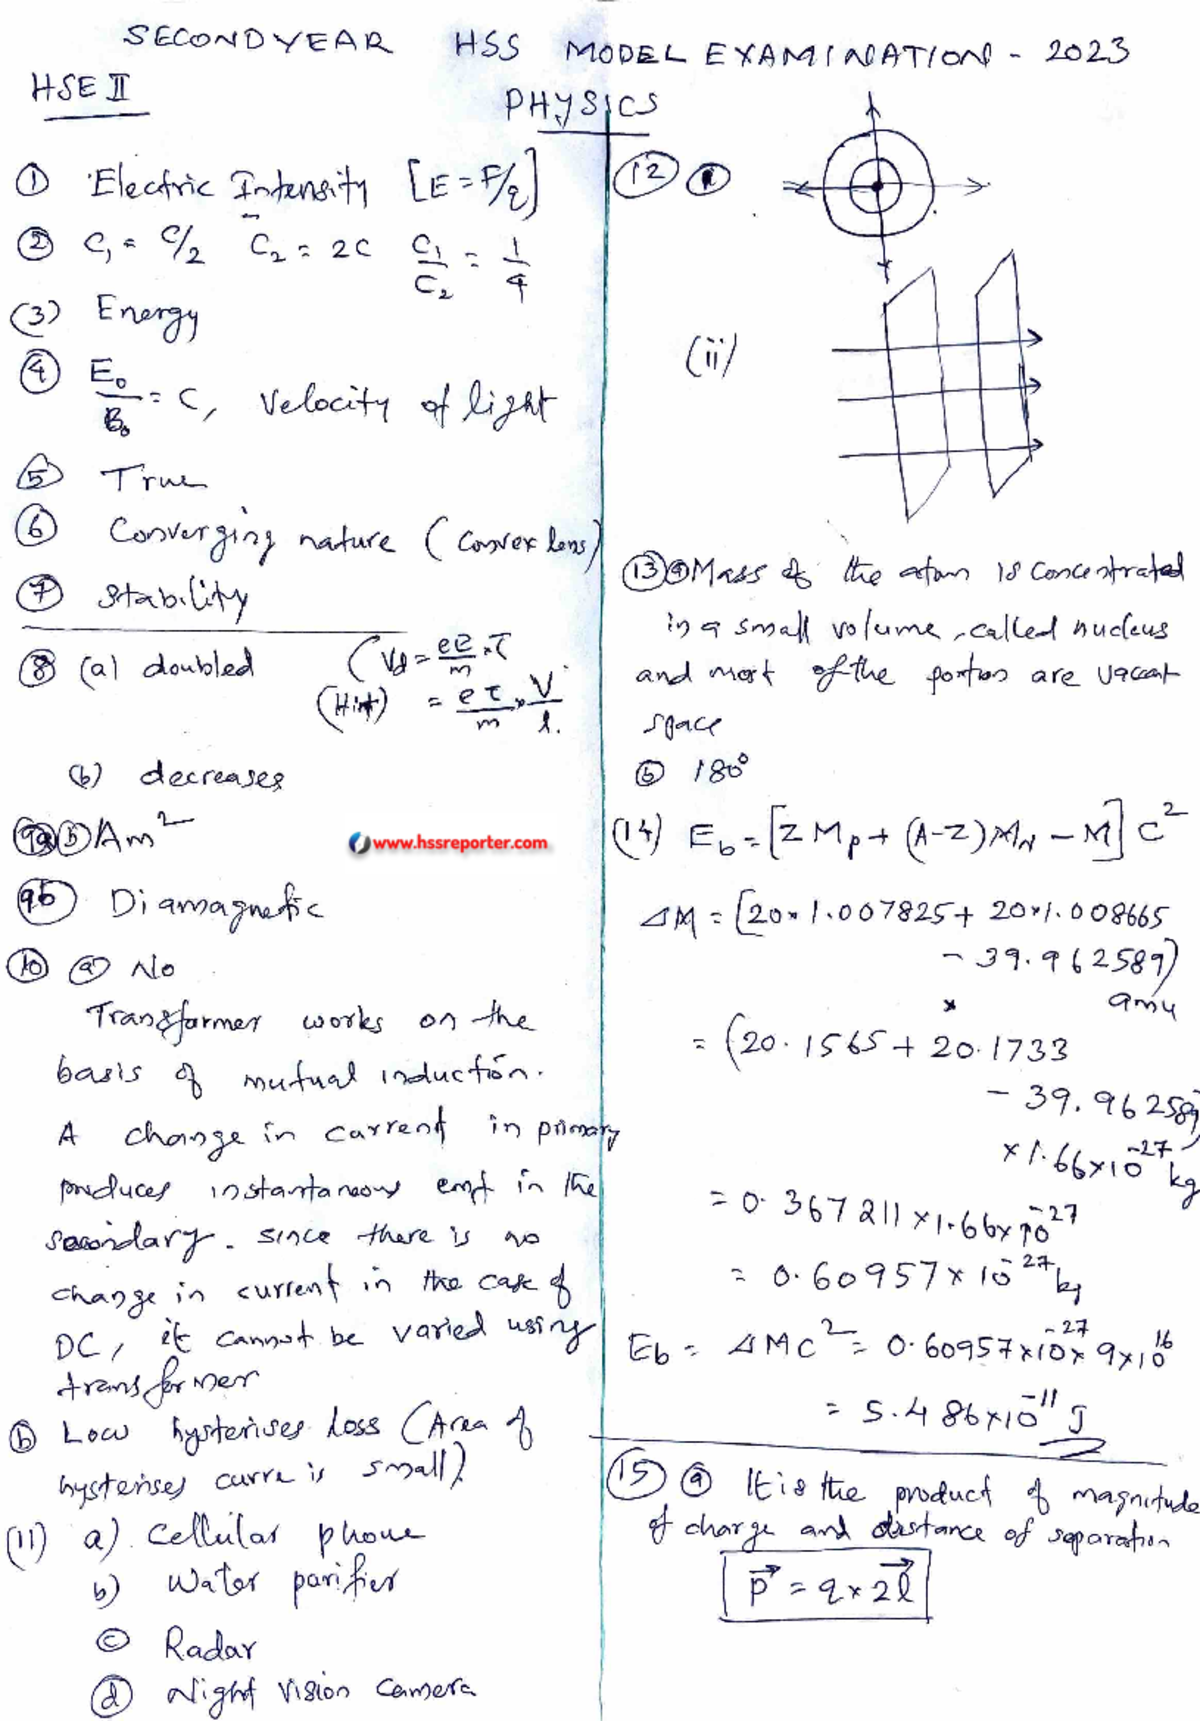 SECOND YEAR HSS MODEL EXAMINATION - 2023
HSE II
PHYSICS
① Electric Intensity [E = F/q]
② C₁ = C/2 C₂ = 2C C₁/C₂ = 1/4
(3) Energy
④ E₀/B₀ = C, velocity of light
⑤ True
⑥ Converging nature (Convex lens)
⑦ Stability
⑧ (a) doubled (Vd = eE/m × τ
(Hint) = eτ/m × V/l.
(b) decreases
9a b Am²
www.hssreporter.com
9b Diamagnetic
⑩ ⓐ No
Transformer works on the
basis of mutual induction.
A change in current in primary
produces instantaneous emf in the
secondary. since there is no
change in current in the case of
DC, it cannot be varied using
transformer
ⓑ Low hysterises loss (Area of
hysterises curve is small)
(11) a) Cellular phone
b) Water purifier
ⓒ Radar
ⓓ Night vision camera
⑫ ⓘ
(ii)
⑬ ⓐ Mass of the atom is concentrated
in a small volume, called nucleus
and most of the portion are vacant
space
ⓑ 180°
(14) E_b = [Z M_p + (A-Z) M_N - M] C²
ΔM = [20 × 1.007825 + 20 × 1.008665
- 39.962589)
× amu
= (20.1565 + 20.1733
- 39.962589)
× 1.66 × 10⁻²⁷ kg
= 0.367211 × 1.66 × 10⁻²⁷
= 0.60957 × 10⁻²⁷ kg
E_b = ΔMC² = 0.60957 × 10⁻²⁷ × 9 × 10¹⁶
= 5.486 × 10⁻¹¹ J
⑮ ⓐ It is the product of magnitude
of charge and distance of separation
p⃗ = q × 2l⃗